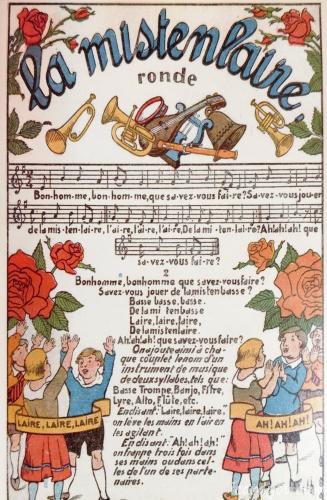 la mistenlaire
ronde
Bon-hom-me, bon-hom-me, que sa-vez-vous fai-re? Sa-vez-vous jou-er
de la mis-ten-lai-re, l'ai-re, l'ai-re, l'ai-re, De la mi-ten-lai-re? Ah! ah! ah! que
sa-vez-vous fai-re?
2
Bonhomme, bonhomme que savez-vous faire?
Savez-vous jouer de la misten basse?
Basse basse, basse.
De la mi tenbasse
Laire, laire, laire,
De la mistenlaire.
Ah! ah! ah! que savez-vous faire?
On ajoute ainsi à cha-
que couplet le nom d'un
instrument de musique
de deux syllabes, tels que:
Basse Trompe, Banjo, Fifre,
Lyre, Alto, Flûte, etc.
En disant: "Laire, laire, laire,"
on lève les mains en l'air en
les agitant.
En disant: "Ah! ah! ah!"
on frappe trois fois dans
ses mains ou dans cel-
les de l'un de ses parte-
naires.
LAIRE, LAIRE, LAIRE
AH! AH! AH!